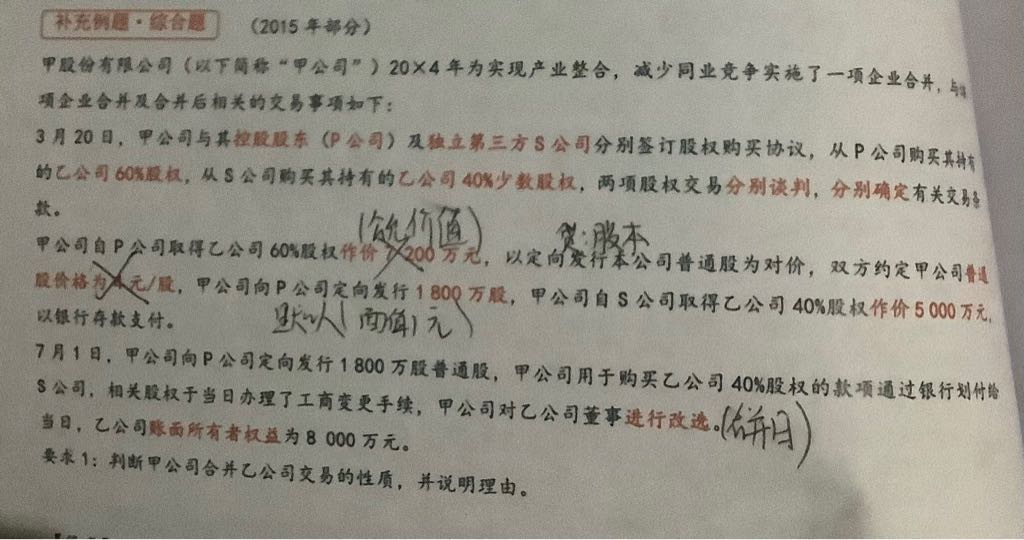 补充例题·综合题 （2015年部分）
甲股份有限公司（以下简称“甲公司”）20×4年为实现产业整合，减少同业竞争实施了一项企业合并，与
项企业合并及合并后相关的交易事项如下：
3月20日，甲公司与其控股股东（P公司）及独立第三方S公司分别签订股权购买协议，从P公司购买其持有
的乙公司60%股权，从S公司购买其持有的乙公司40%少数股权，两项股权交易分别谈判，分别确定有关交易条
款。
(公允价值) 贷:股本
甲公司自P公司取得乙公司60%股权作价 200万元，以定向发行本公司普通股为对价，双方约定甲公司普通
股价格为 元/股，甲公司向P公司定向发行1 800万股，甲公司自S公司取得乙公司40%股权作价5 000万元，
以银行存款支付。 默认(面值1元)
7月1日，甲公司向P公司定向发行1 800万股普通股，甲公司用于购买乙公司40%股权的款项通过银行划付给
S公司，相关股权于当日办理了工商变更手续，甲公司对乙公司董事进行改选。(合并日)
当日，乙公司账面所有者权益为8 000万元。
要求1：判断甲公司合并乙公司交易的性质，并说明理由。